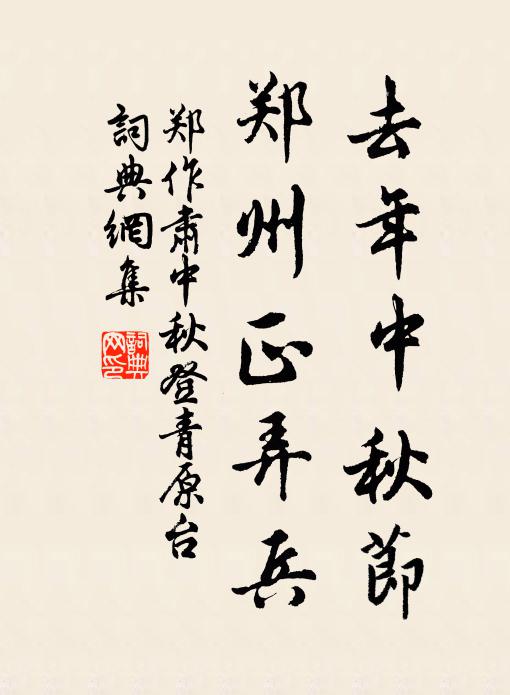 去年中秋節
郑州正弄兵
郑作肃中秋登青原台
詞典網集
詞典网印